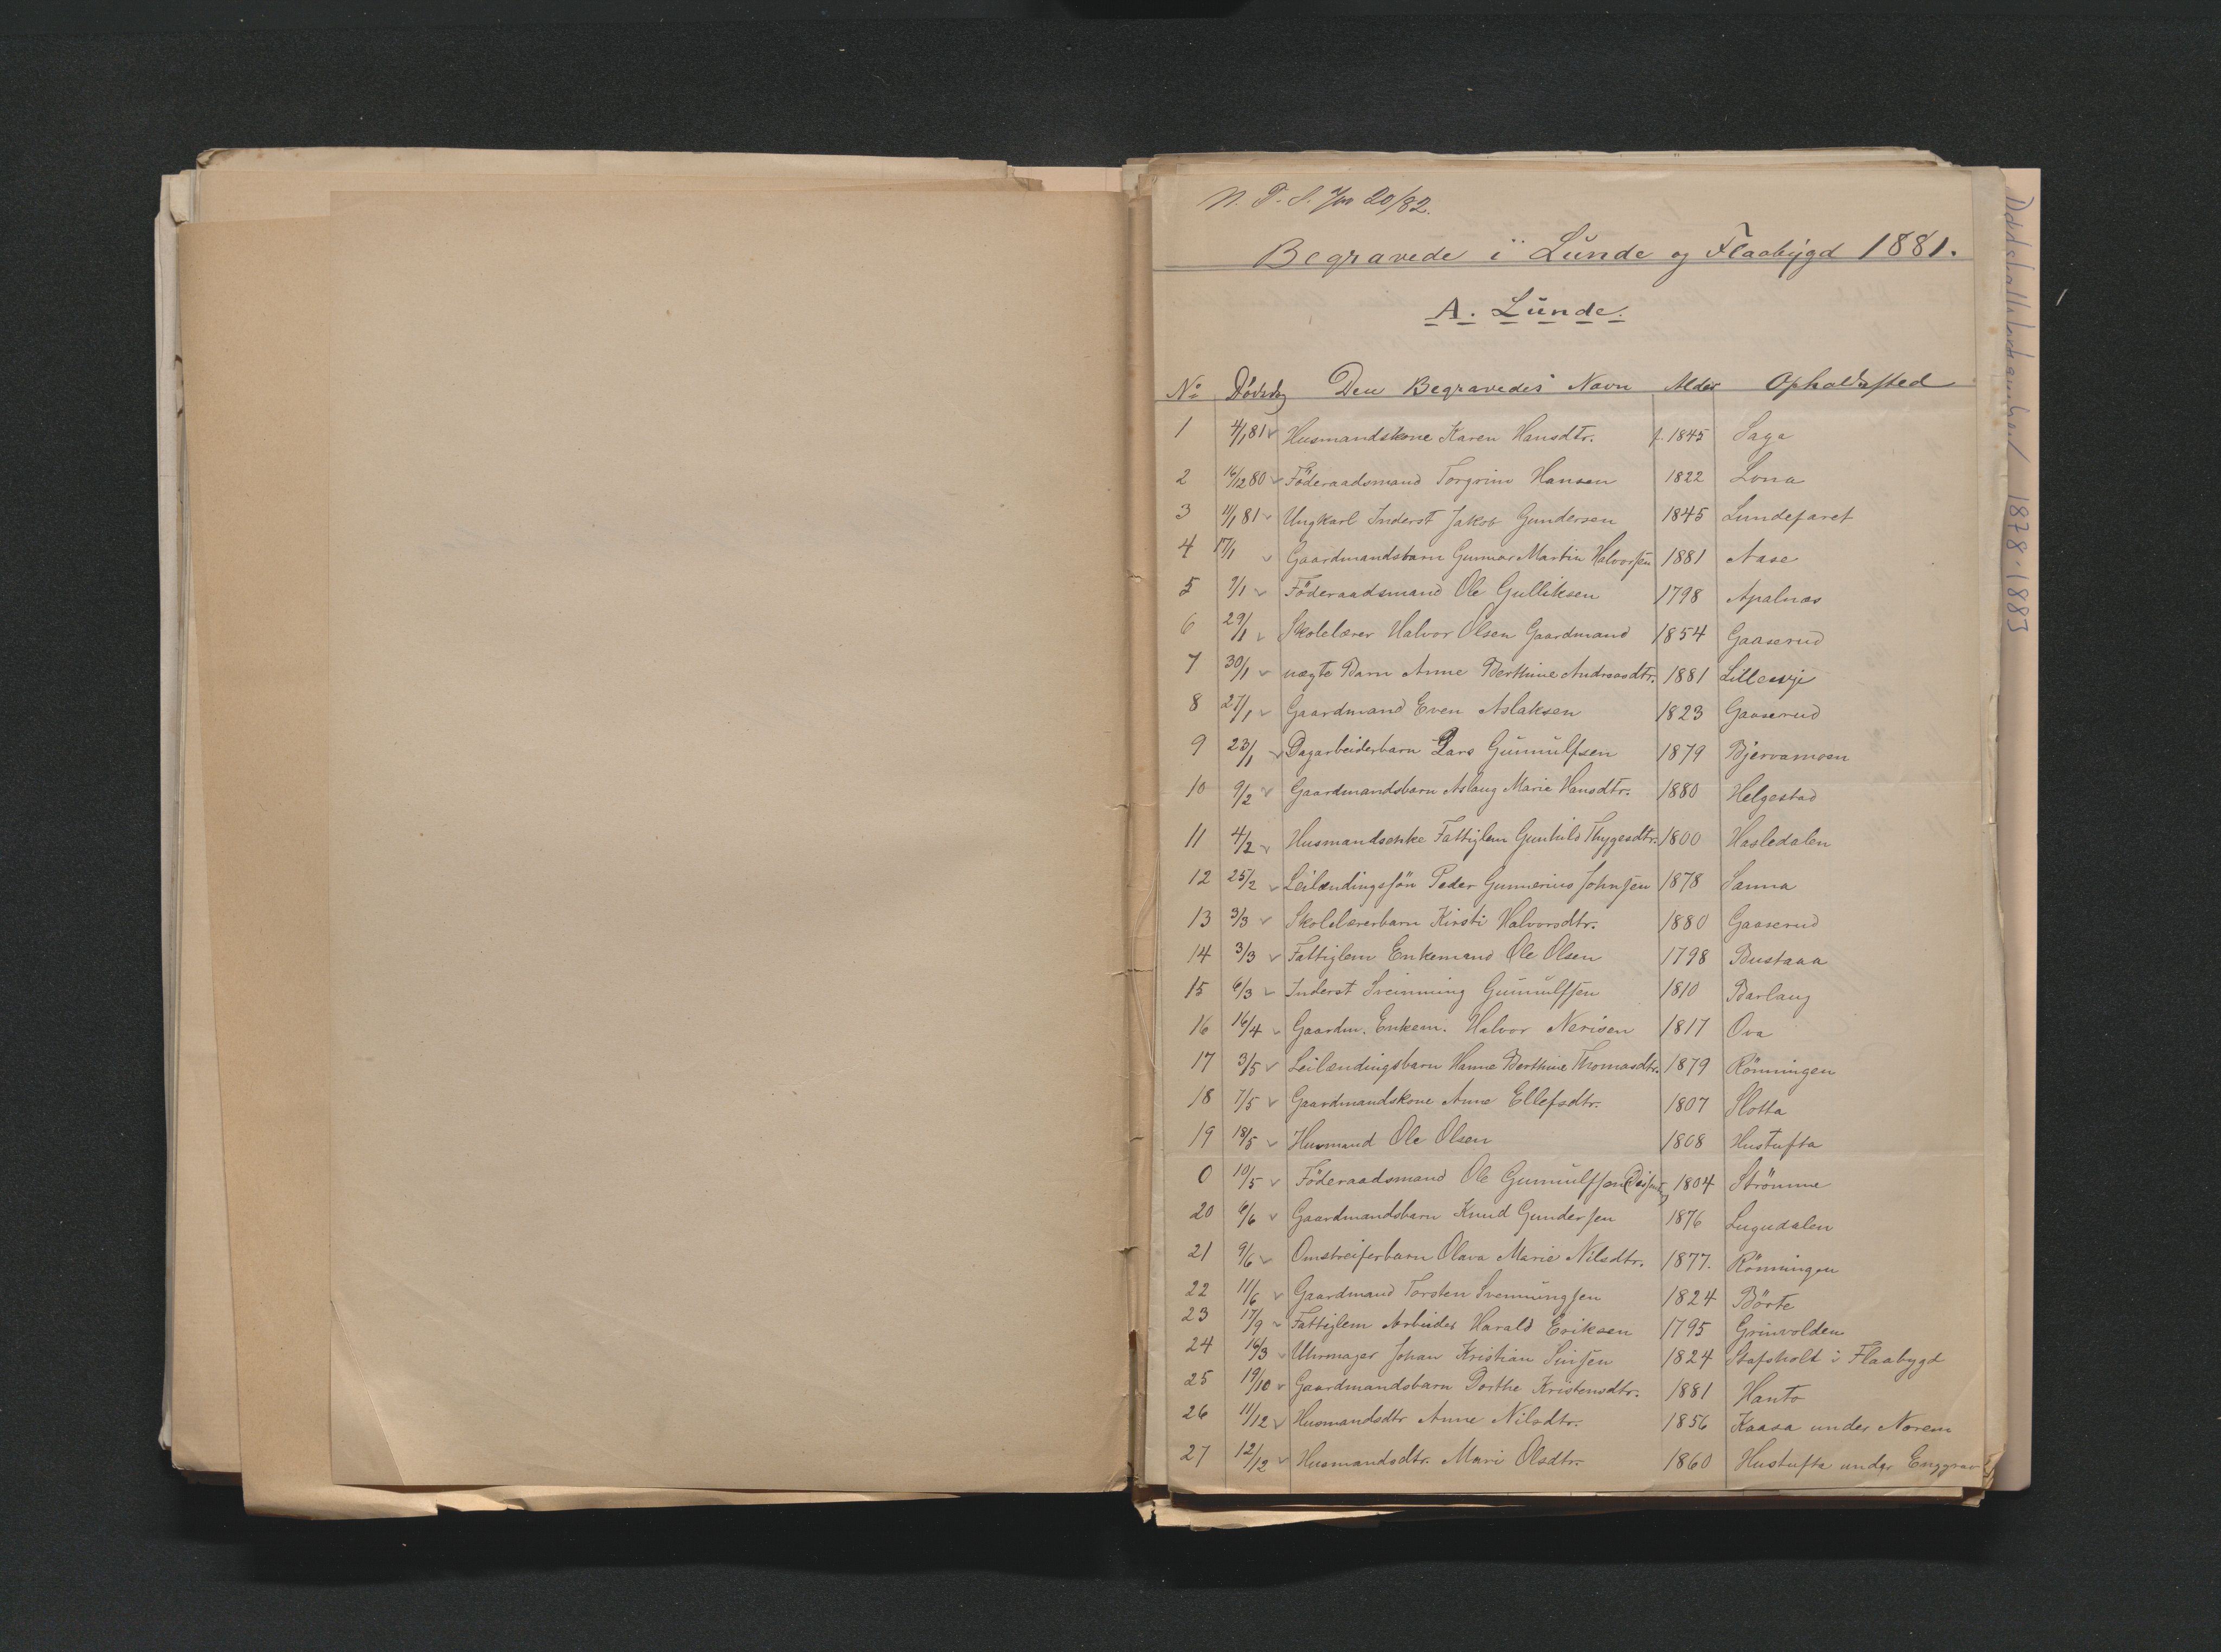 N. T. S. Jm 20/82.
Begravede i Lunde og Flaabygd 1881.
A. Lunde.
No Dødsdag Den Begravedes Navn Alder Opholdssted
1 4/1 81 Husmandskone Karen Hansdtr. f. 1845 Saga
2 16/12 80 Föderaadsmand Torgrim Hansen 1822 Lona
3 11/1 81 Ungkarl Inderst Jakob Gundersen 1845 Lundefaret
4 17/1 Gaardmandsbarn Gunnar Martin Halvorsen 1881 Aase
5 9/1 Föderaadsmand Ole Gulliksen 1798 Apalnæs
6 29/1 Skolelærer Halvor Olsen Gaardmand 1854 Gaaserud
7 30/1 uægte Barn Anne Berthine Andreasdtr. 1881 Lilleeije
8 27/1 Gaardmand Even Aslaksen 1823 Gaaserud
9 23/1 Dagarbeiderbarn Lars Gunnulfsen 1879 Bjervamoen
10 9/2 Gaardmandsbarn Aslaug Marie Hansdtr. 1880 Helgestad
11 4/2 Husmandsenke Fattiglem Gunhild Thygesdtr. 1800 Hasledalen
12 25/2 Leilændingssön Peder Gunnerius Johnsen 1878 Sanna
13 3/3 Skolelærerbarn Kirsti Halvorsdtr. 1880 Gaaserud
14 3/3 Fattiglem Enkemand Ole Olsen 1798 Bustaaa
15 6/3 Inderst Sveinung Gunnulfsen 1810 Barlaug
16 16/4 Gaardm. Enkem. Halvor Nerisen 1817 Ova
17 3/5 Leilændingsbarn Hanne Berthine Thomasdtr. 1879 Rönningen
18 7/5 Gaardmandskone Anne Ellefsdtr. 1807 Slotta
19 18/5 Husmand Ole Olsen 1808 Hustufta
0 10/5 Föderaadsmand Ole Gunnulfsen 1804 Strömme
20 6/6 Gaardmandsbarn Knud Gundersen 1876 Lugudalen
21 9/6 Omstreiferbarn Olava Marie Nilsdtr. 1877. Rönningen
22 11/6 Gaardmand Torsten Svennungsen 1824 Börte
23 17/9 Fattiglem Arbeider Harald Eriksen 1795 Grinvolden
24 16/3 Uhrmager Johan Kristian Sinsen 1824 Stafsholt i Flaabygd
25 19/10 Gaardmandsbarn Dorthe Kristensdtr. 1881 Hanto
26 11/12 Husmandsdtr Anne Nilsdtr. 1856 Kaasa under Norem
27 12/12 Husmandsdtr. Mari Olsdtr. 1860 Hustufta under Enggrav
Dødsfallslister 1878-1883